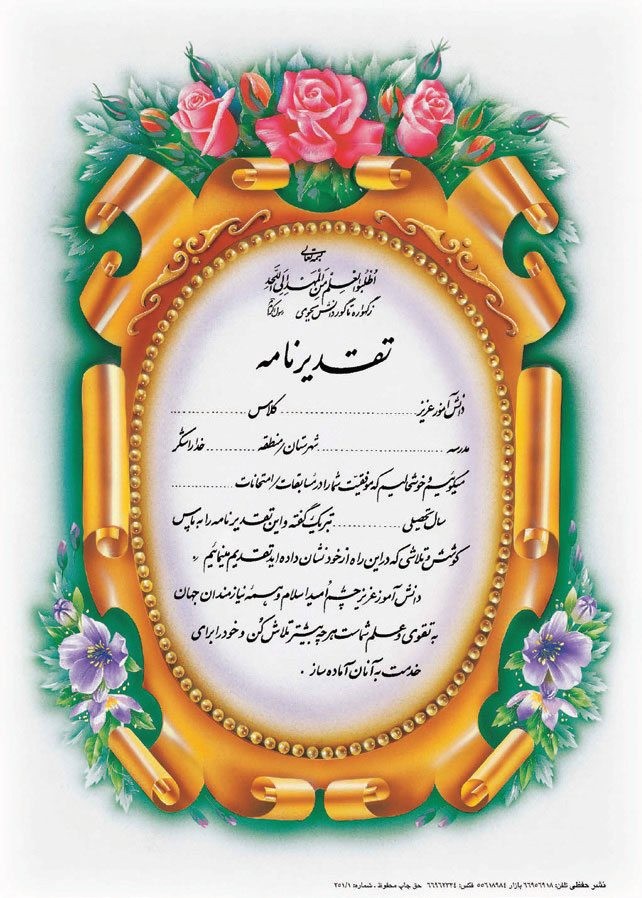 بسمه تعالی
اُطْلُبُوا الْعِلْمَ مِنَ الْمَهْدِ اِلَی اللَّحْدِ
زگهواره تا گور دانش بجوی رسول اکرم
تقدیرنامه
دانش آموز عزیز .................... کلاس ....................
مدرسه .................... شهرستان/منطقه .................... خدا را شکر
میگوئیم و خوشحالیم که موفقیت شما را در مسابقات/امتحانات ....................
سال تحصیلی .................... تبریک گفته و این تقدیرنامه را به پاس
کوشش و تلاشی که در این راه از خود نشان داده اید تقدیم مینمائیم
دانش آموز عزیز چشم اُمید اسلام و همهٔ نیازمندان جهان
به تقوی و علم شماست هر چه بیشتر تلاش کُن و خود را برای
خدمت به آنان آماده ساز .
نشر حفظی تلفن: ۶۶۹۵۶۹۱۸ بازار ۵۵۶۱۸۹۸۴ فکس: ۶۶۹۶۲۲۲۴ حق چاپ محفوظ . شماره: ۲۵۱/۱